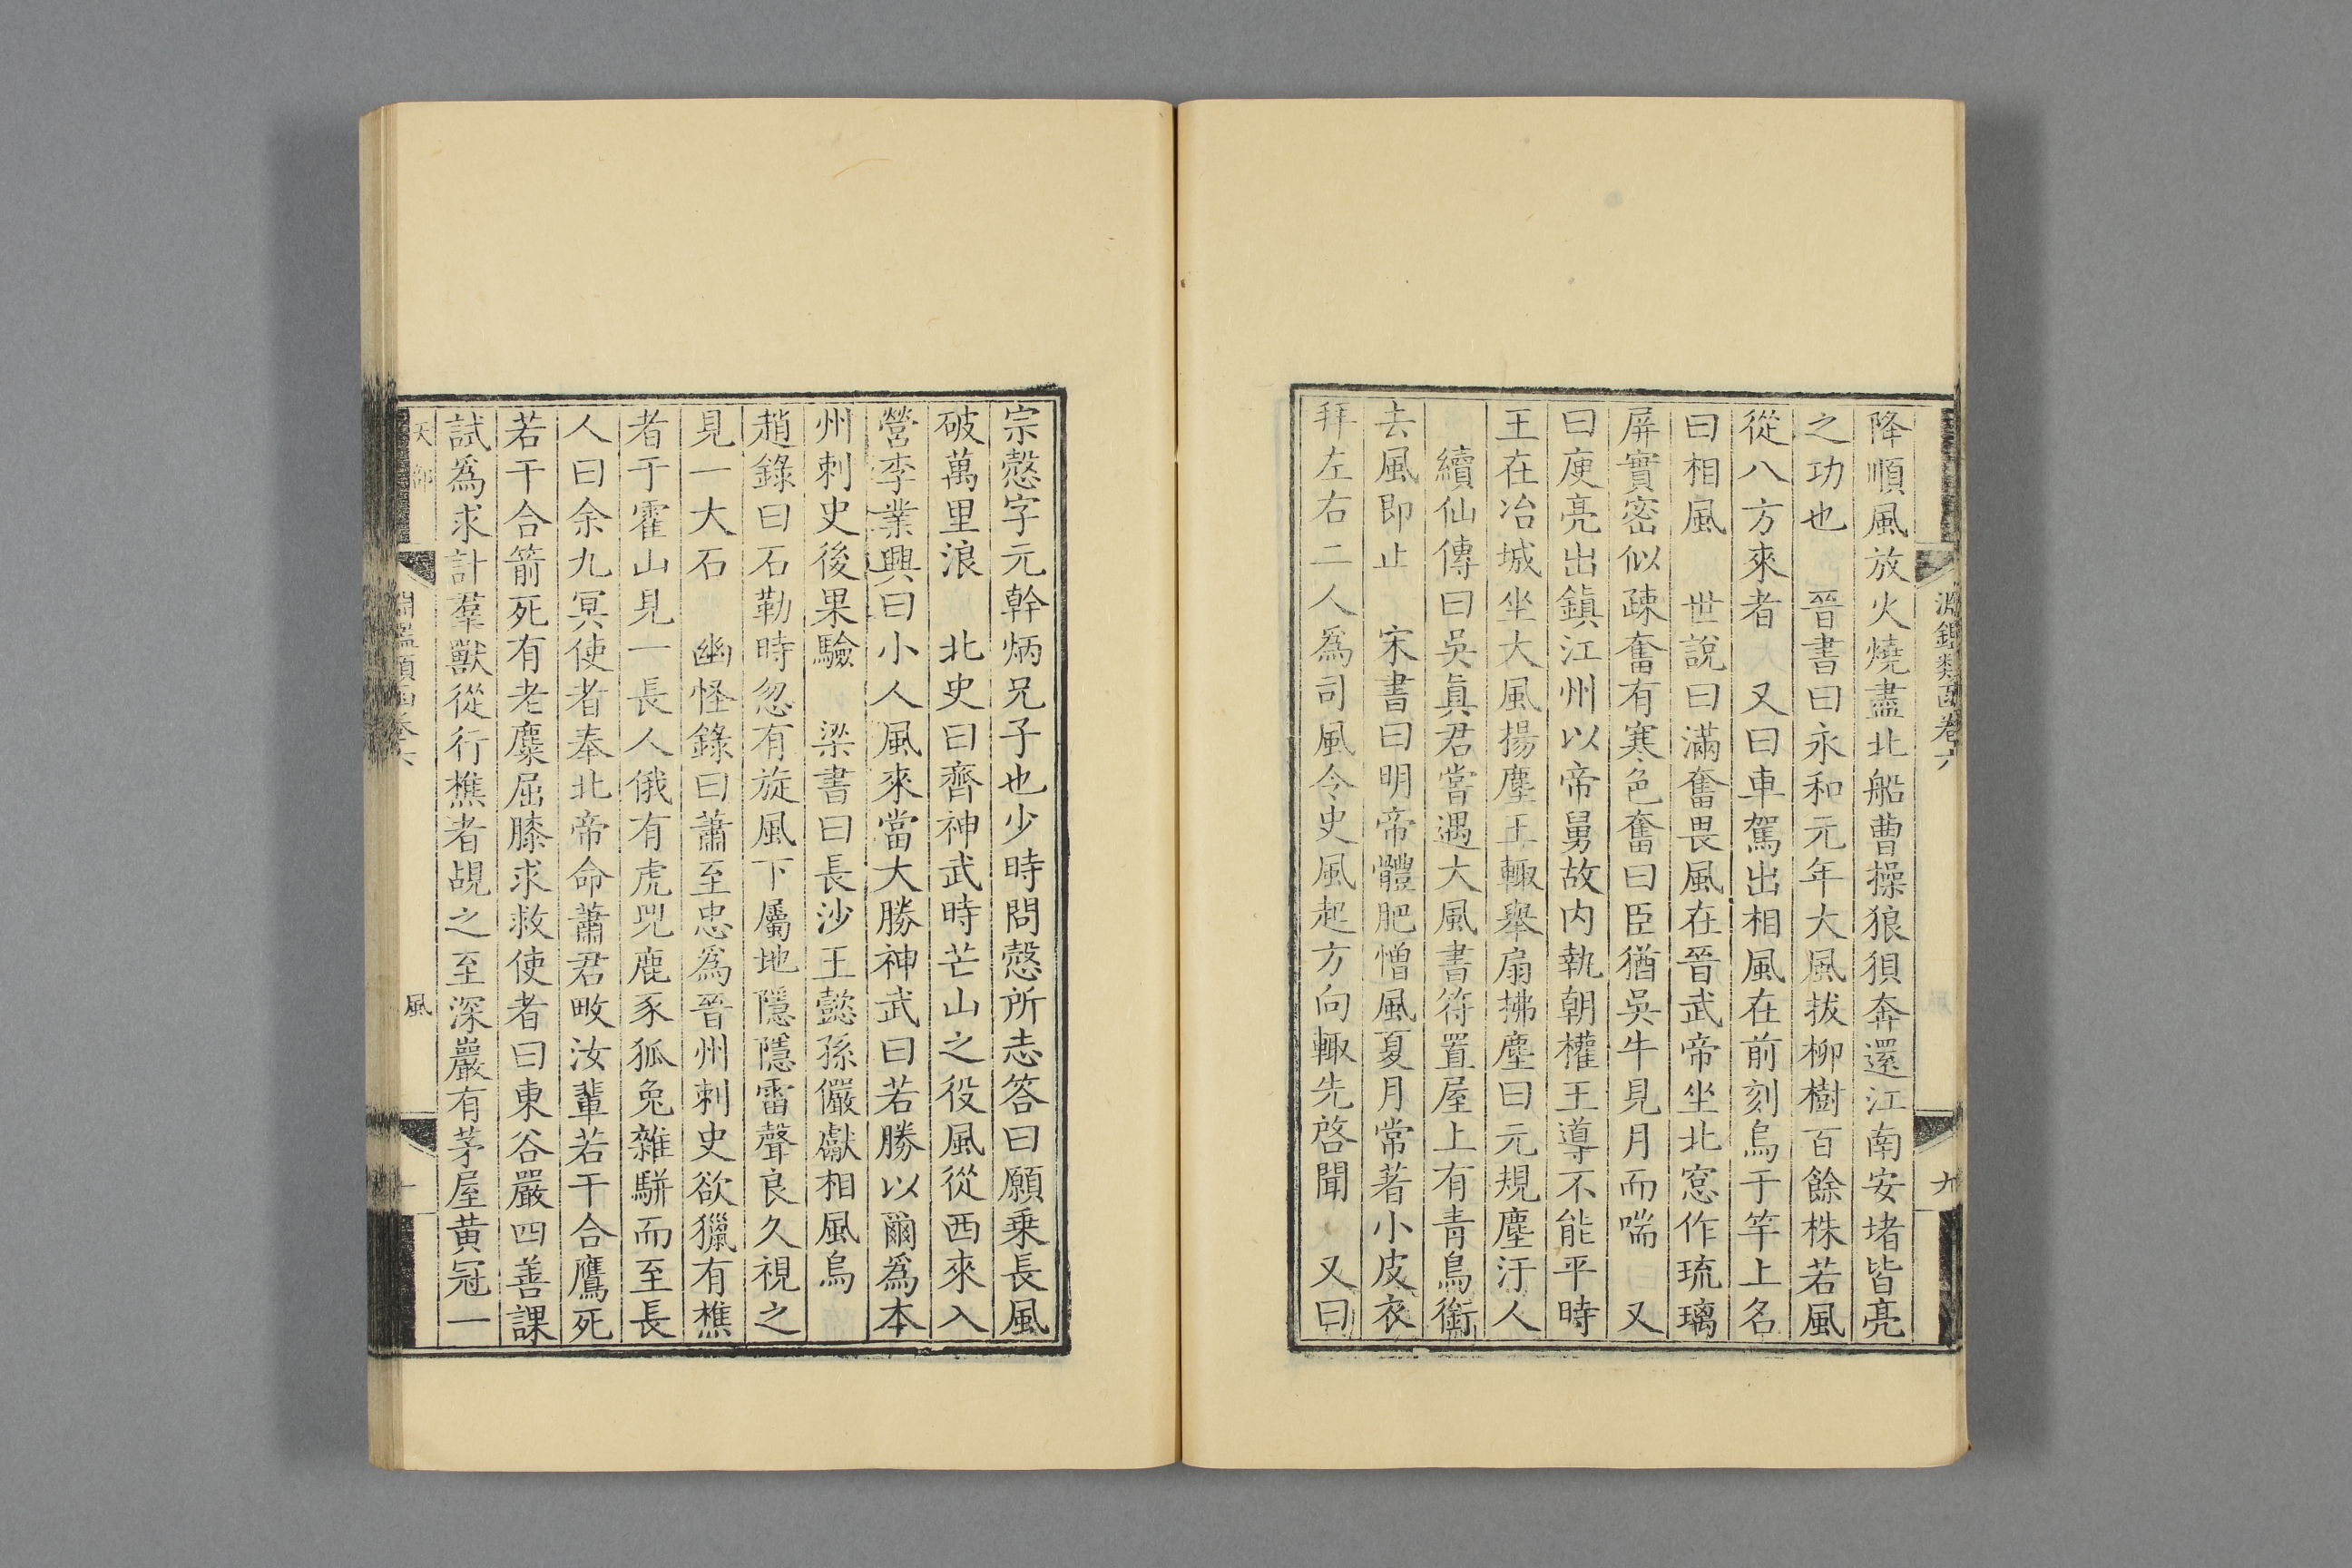 淵鑑類函卷六
九
降順風放火燒盡北船曹操狼狽奔還江南安堵皆亮
之功也 晉書曰永和元年大風拔柳樹百餘株若風
從八方來者 又曰車駕出相風在前刻烏于竿上名
曰相風 世說曰滿奮畏風在晉武帝坐北窓作琉璃
屏實密似疎奮有寒色奮曰臣猶吳牛見月而喘 又
曰庾亮出鎮江州以帝舅故内執朝權王導不能平時
王在冶城坐大風揚塵王輙舉扇拂塵曰元規塵汙人
續仙傳曰吳真君嘗遇大風書符置屋上有青鳥銜
去風即止 宋書曰明帝體肥憎風夏月常著小皮衣
拜左右二人爲司風令史風起方向輙先啓聞 又曰
宗慤字元幹炳兄子也少時問慤所志答曰願乗長風
破萬里浪 北史曰齊神武時芒山之役風從西來入
營李業興曰小人風來當大勝神武曰若勝以爾爲本
州刺史後果驗 梁書曰長沙王懿孫儼獻相風烏
趙錄曰石勒時忽有旋風下屬地隱隱雷聲良久視之
見一大石 幽怪錄曰蕭至忠爲晉州刺史欲獵有樵
者于霍山見一長人俄有虎兕鹿豕狐兔雜駢而至長
人曰余九冥使者奉北帝命蕭君畋汝輩若干合鷹死
若干合箭死有老麋屈膝求救使者曰東谷嚴四善課
試爲求計羣獸從行樵者覘之至深巖有茅屋黄冠一
天部
淵鑑類函卷六
風